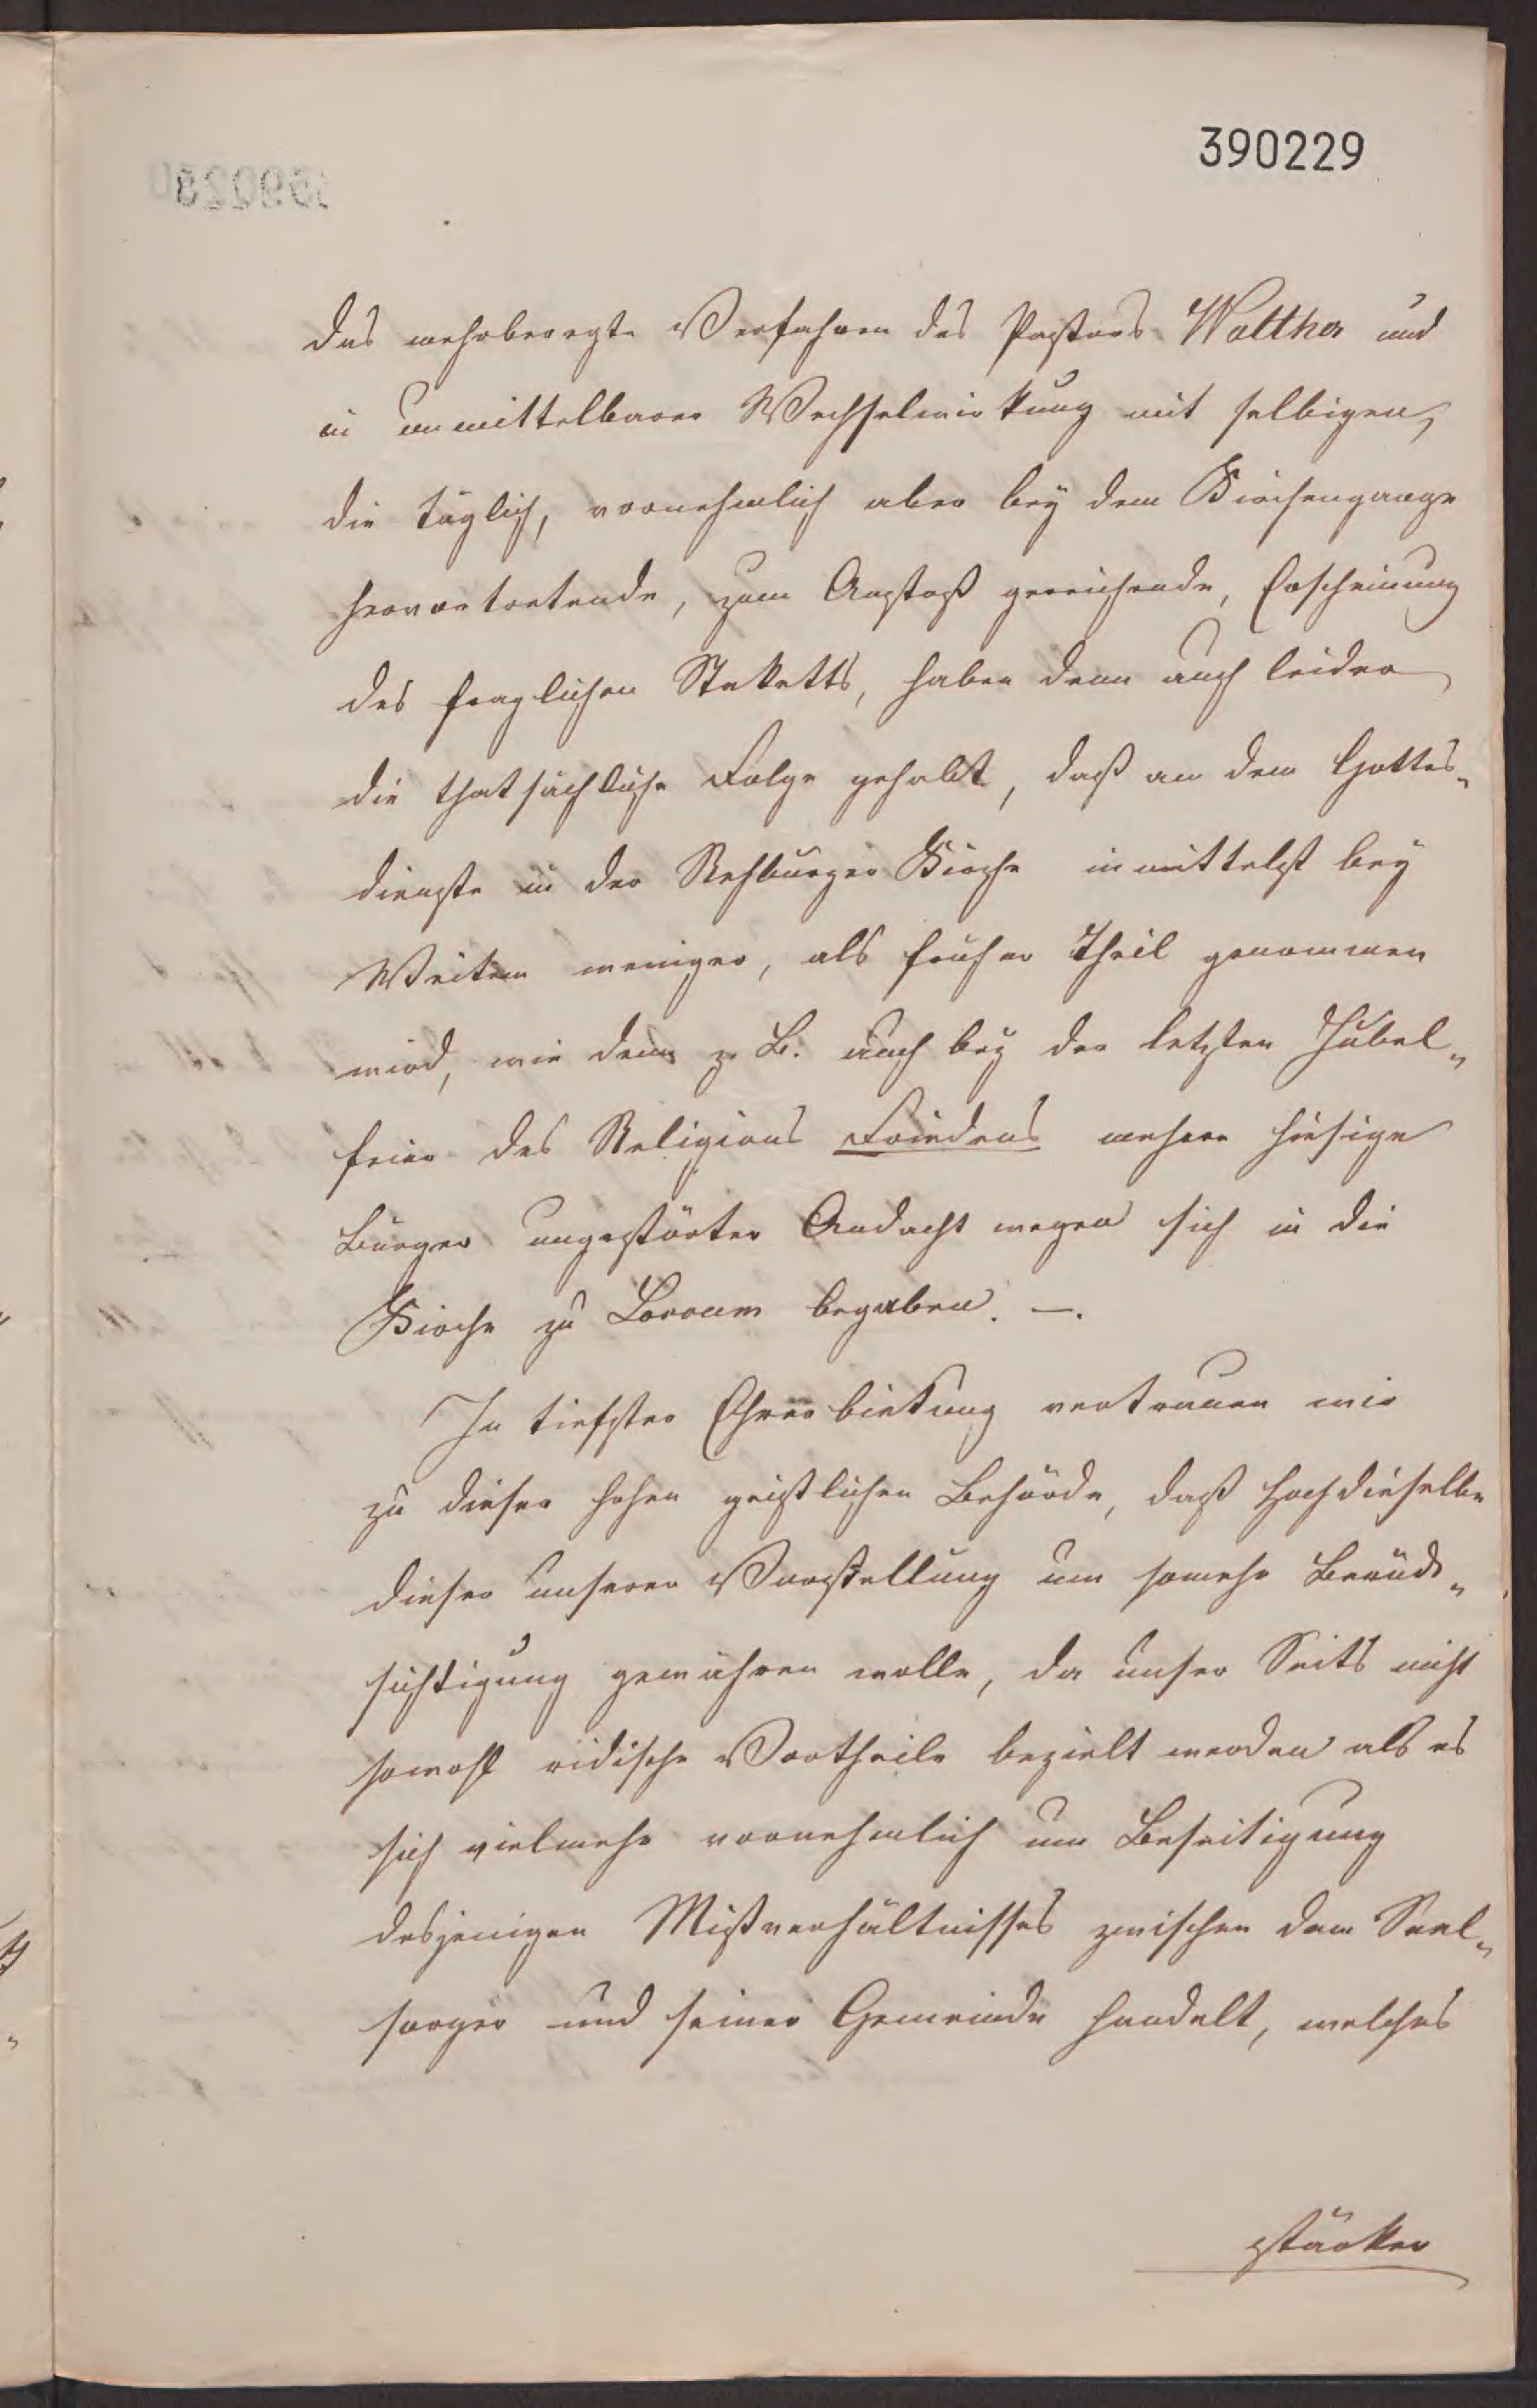 390229
das mehrberegte Verfahren des Pastors Walther und
in unmittelbarer Wechselwirkung mit selbigen,
die täglich, vornehmlich aber bey dem Kirchengange
hervortretende, zum Anstoß gereichende, Erscheinung
des fraglichen Staketts, haben denn auch leider
die thatsächliche Folge gehabt, daß an dem Gottes„
dienste in der Rehburger Kirche inmittelst bey
Weitem weniger, als früher Theil genommen
wird, wie denn z. B. auch bey der letzten Jubel„
feier des Religions Friedens mehrere hiesige
Bürger ungestörter Andacht wegen sich in die
Kirche zu Loccum begaben. —.
In tiefster Ehrerbietung vertrauen wir
zu dieser hohen geistlichen Behörde, daß Hochdieselbe
dieser unserer Vorstellung um somehr Berück„
sichtigung gewähren wolle, da unser Seits nicht
sowohl irdische Vortheile bezielt werden als es
sich vielmehr vornehmlich um Beseitigung
desjenigen Mißverhältnisses zwischen dem Seel„
sorger und seiner Gemeinde handelt, welches
stärker